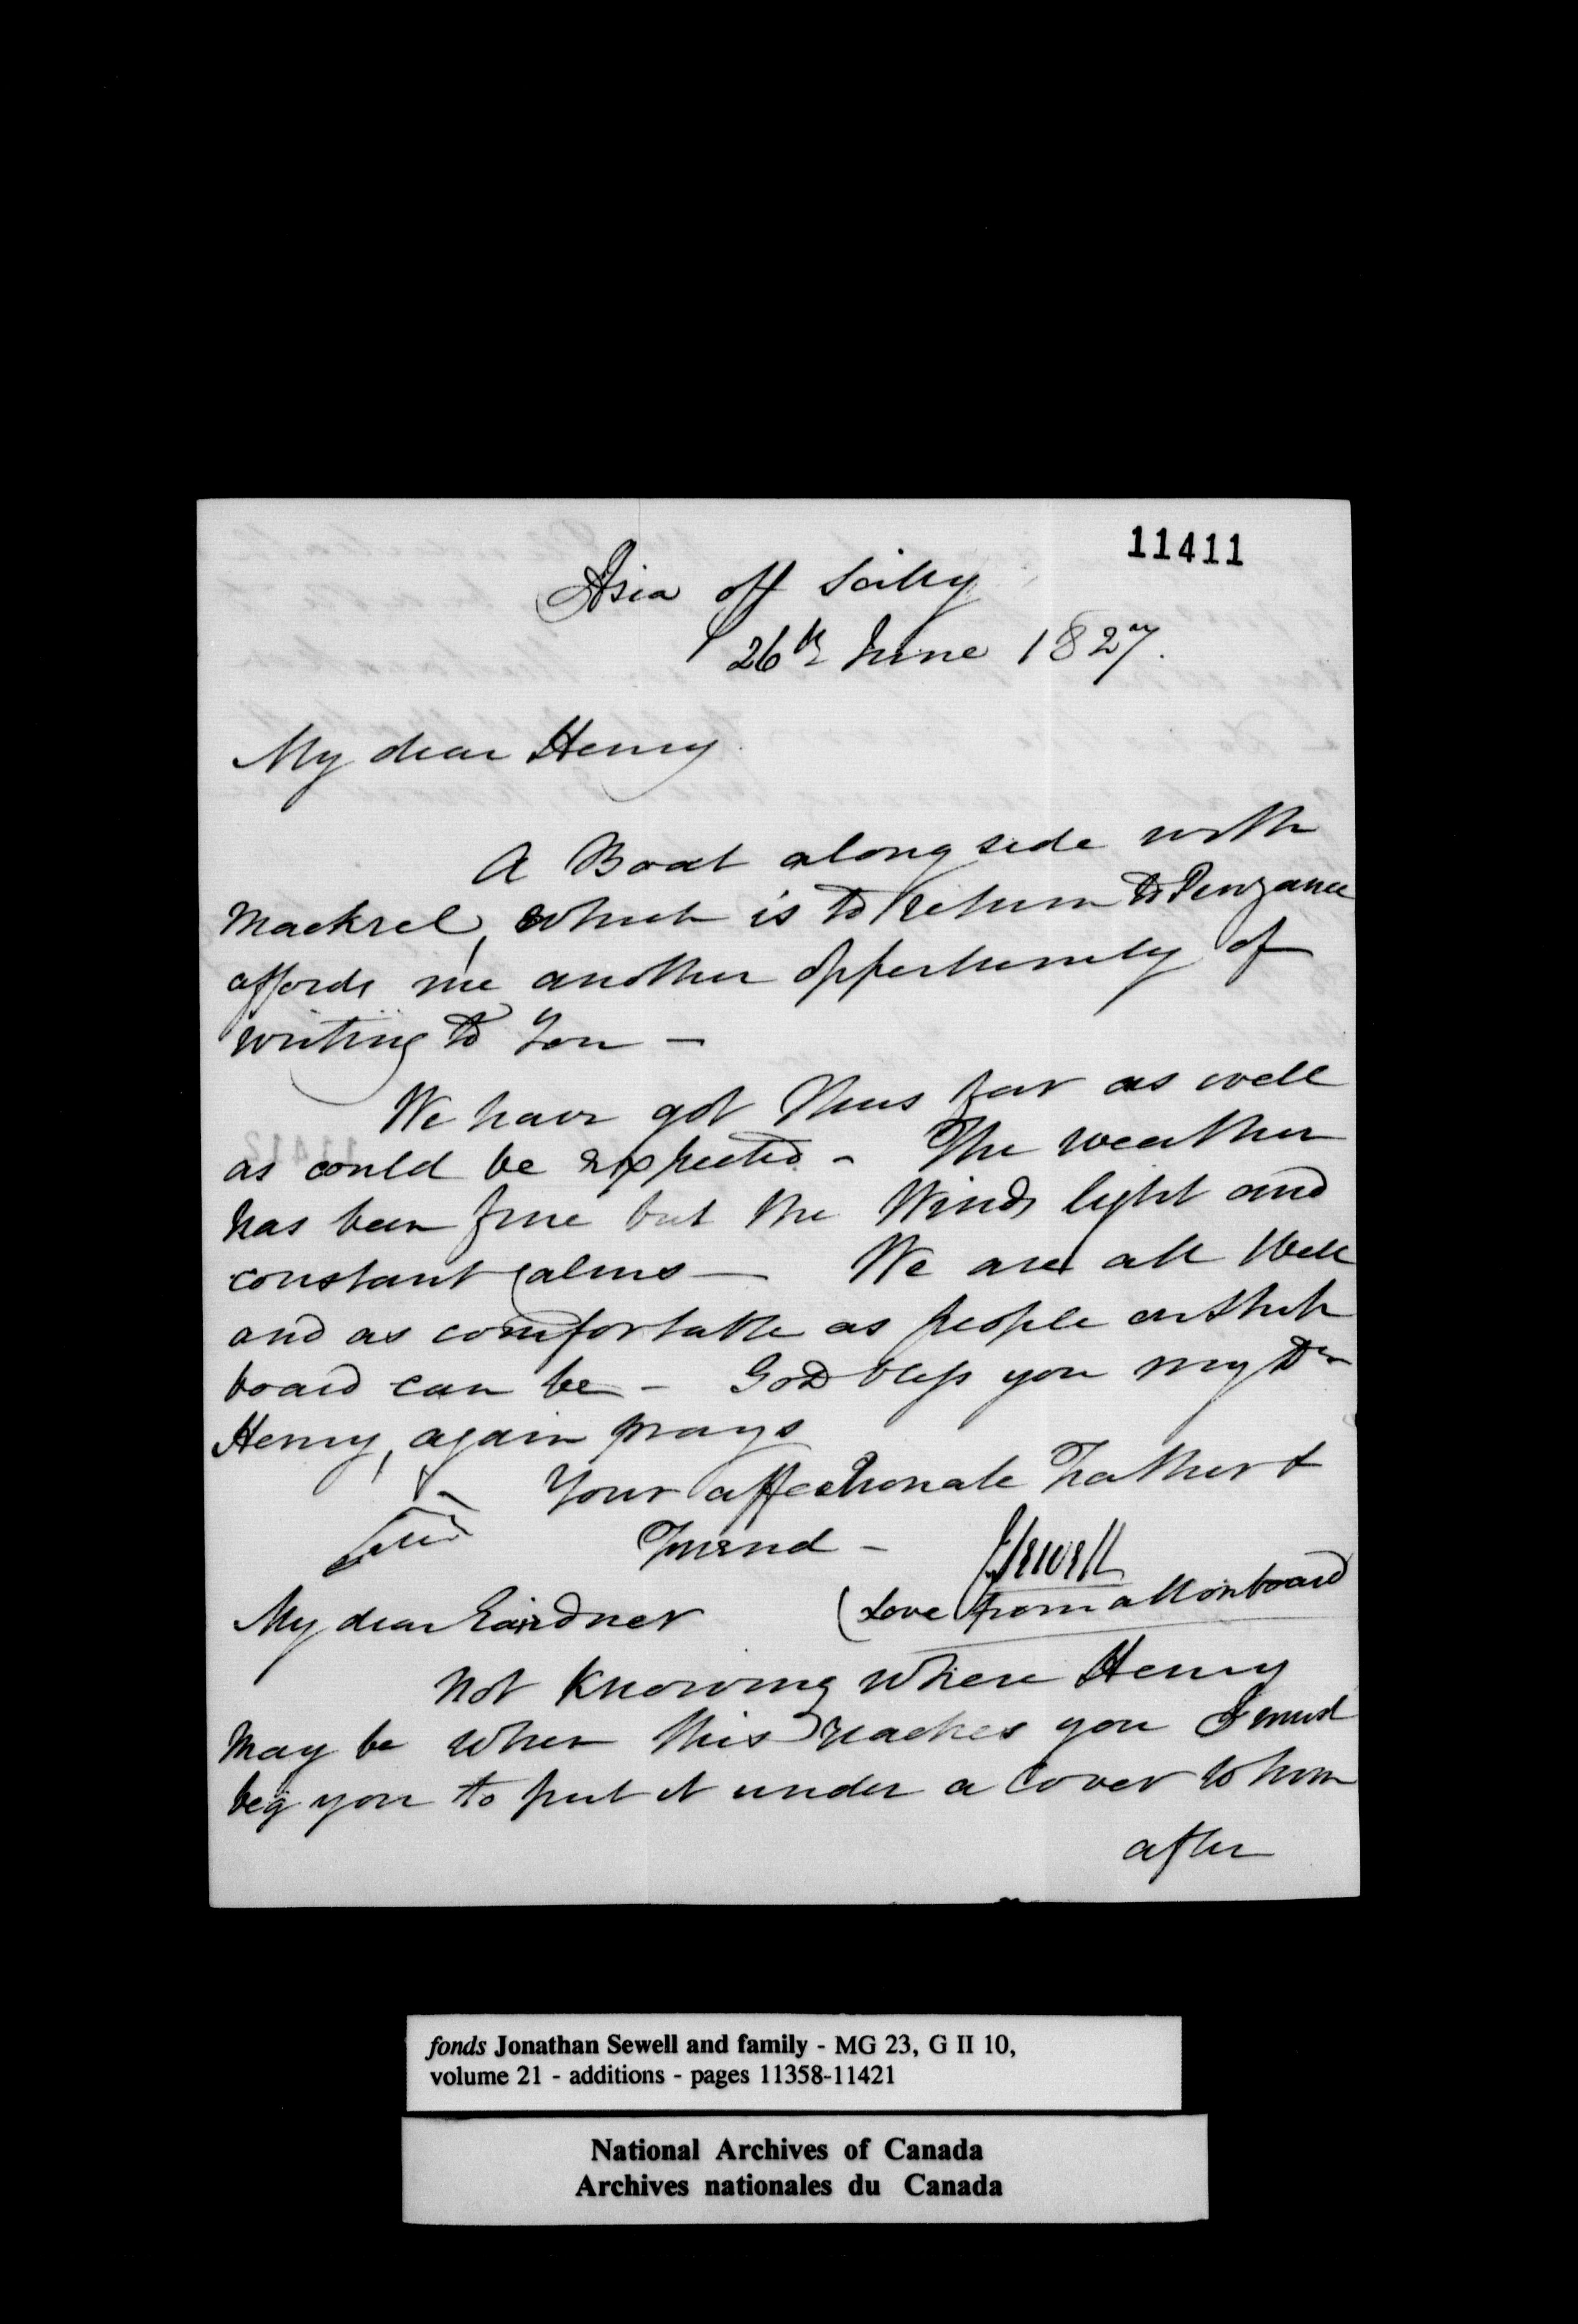 11411
Asia off Scilly
26th June 1827.
My dear Henry
A Boat along side with
Mackrel, which is to return to Penzance
affords me another opportunity of
writing to You -
We have got thus far as well
as could be expected - The weather
has been fine but the Winds light and
constant Calms - We are all Well
and as comfortable as people on Ship
board can be - God bless you my Dr
Henry, again prays
Your affectionate Father &
Friend -
JSewell
(Love from all on board
My dear Gairdner
Not Knowing where Henry
may be when this reaches you I must
beg you to put it under a Cover to him
after
fonds Jonathan Sewell and family - MG 23, G II 10,
volume 21 - additions - pages 11358-11421
National Archives of Canada
Archives nationales du Canada